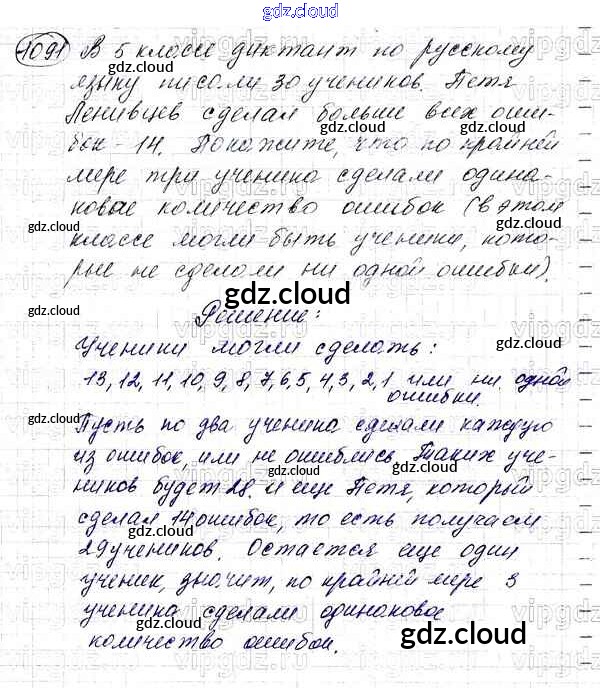 gdz.cloud
1091 В 5 классе диктант по русскому
языку писали 30 учеников. Петя
Ленивцев сделал больше всех оши-
бок - 14. Покажите, что по крайней
мере три ученика сделали одина-
ковое количество ошибок (в этом
классе могли быть ученики, кото-
рые не сделали ни одной ошибки).
Решение:
Ученики могли сделать:
13, 12, 11, 10, 9, 8, 7, 6, 5, 4, 3, 2, 1 или ни одной
ошибки.
Пусть по два ученика сделали каждую
из ошибок, или не ошиблись. Таких уче-
ников будет 28. и еще Петя, который
сделал 14 ошибок, то есть получаем
29 учеников. Остается еще один
ученик, значит, по крайней мере 3
ученика сделали одинаковое
количество ошибок.
gdz.cloud